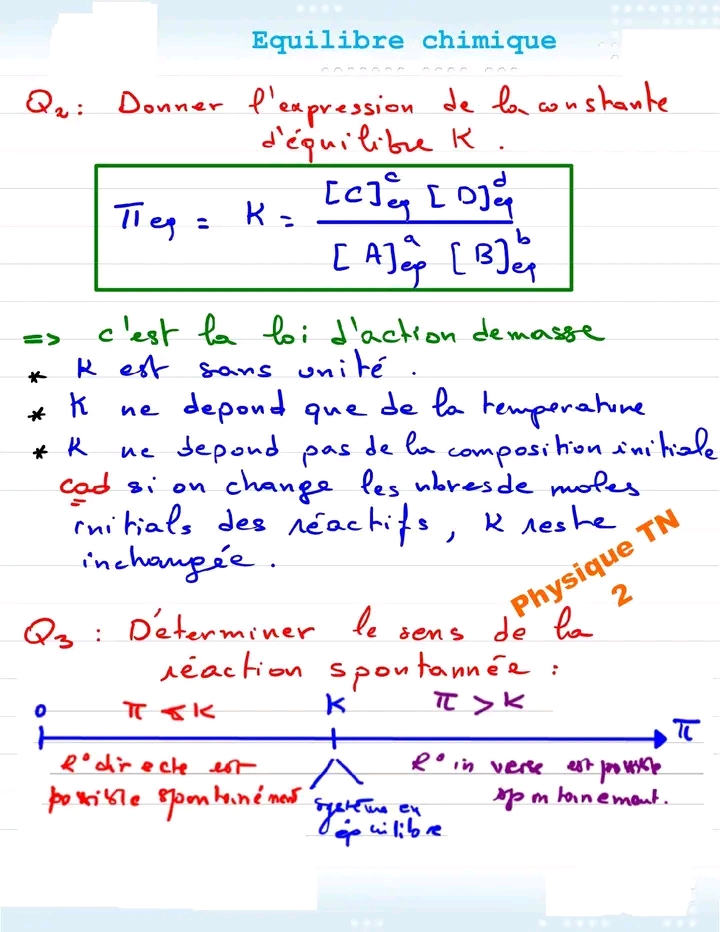 Equilibre chimique
Q2 : Donner l'expression de la constante
d'équilibre K .
πeq = K = [C]^c eq [D]^d eq / [A]^a eq [B]^b eq
=> c'est la loi d'action de masse
* K est sans unité .
* K ne depond que de la temperature
* K ne depond pas de la composition initiale
cad si on change les nbres de moles
initials des réactifs, K reste
inchangée .
Physique TN
2
Q3 : Déterminer le sens de la
réaction spontannée :
0 π < K K π > K π
R° directe est
possible spontainément
système en
équilibre
R° inverse est possible
spontainement.